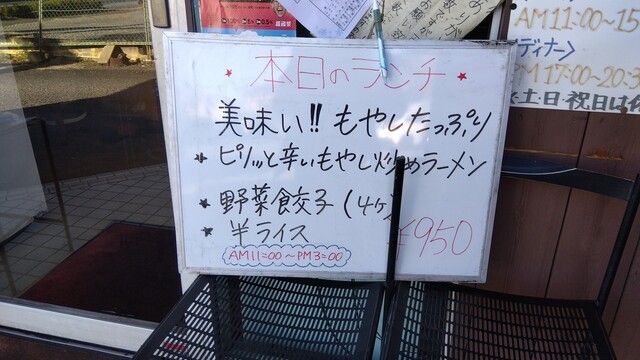 ★ 本日のランチ ★
美味い!! もやしたっぷり
★ ピリッと辛いもやし炒めラーメン
★ 野菜餃子(4ケ)
★ 半ライス
¥950
AM11:00〜PM3:00
AM11:00〜15
ディナー>
PM 17:00〜20:3
土日祝日は